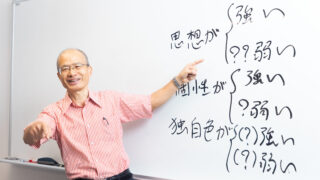 思想が
強い
??弱い
個性が
強い
?弱い
独自色が
(?)強い
(?)弱い